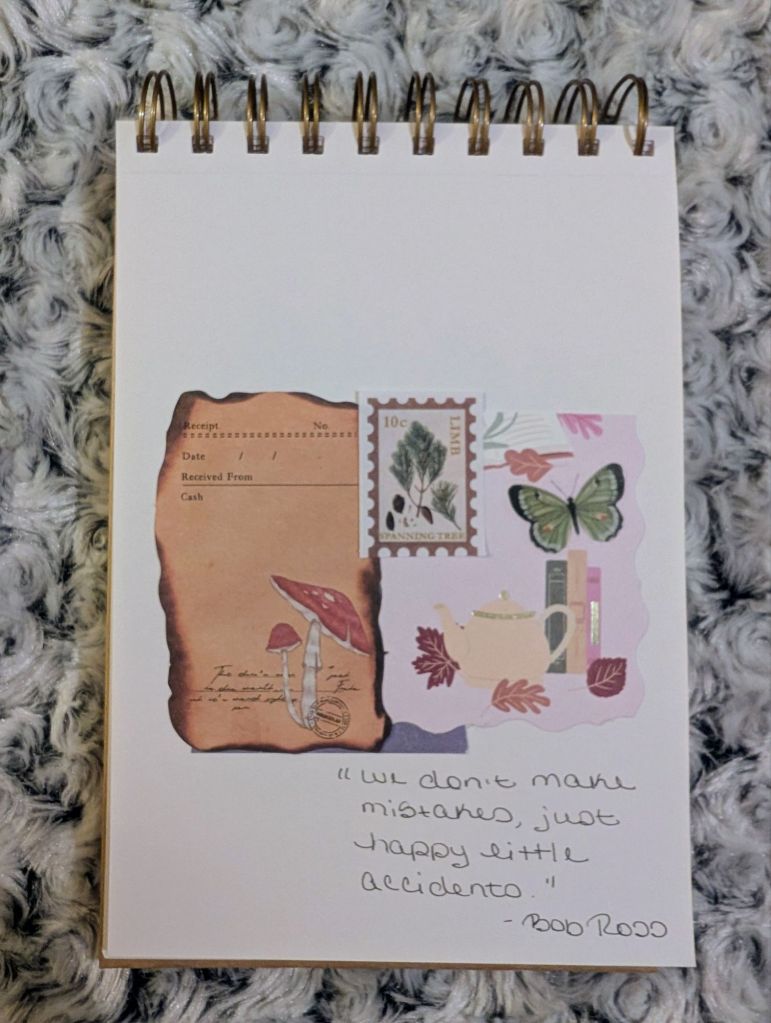 Receipt No.
Date / /
Received From
Cash
10c
LIMB
SPANNING TREE
"we don't make
mistakes, just
happy little
accidents."
- Bob Ross